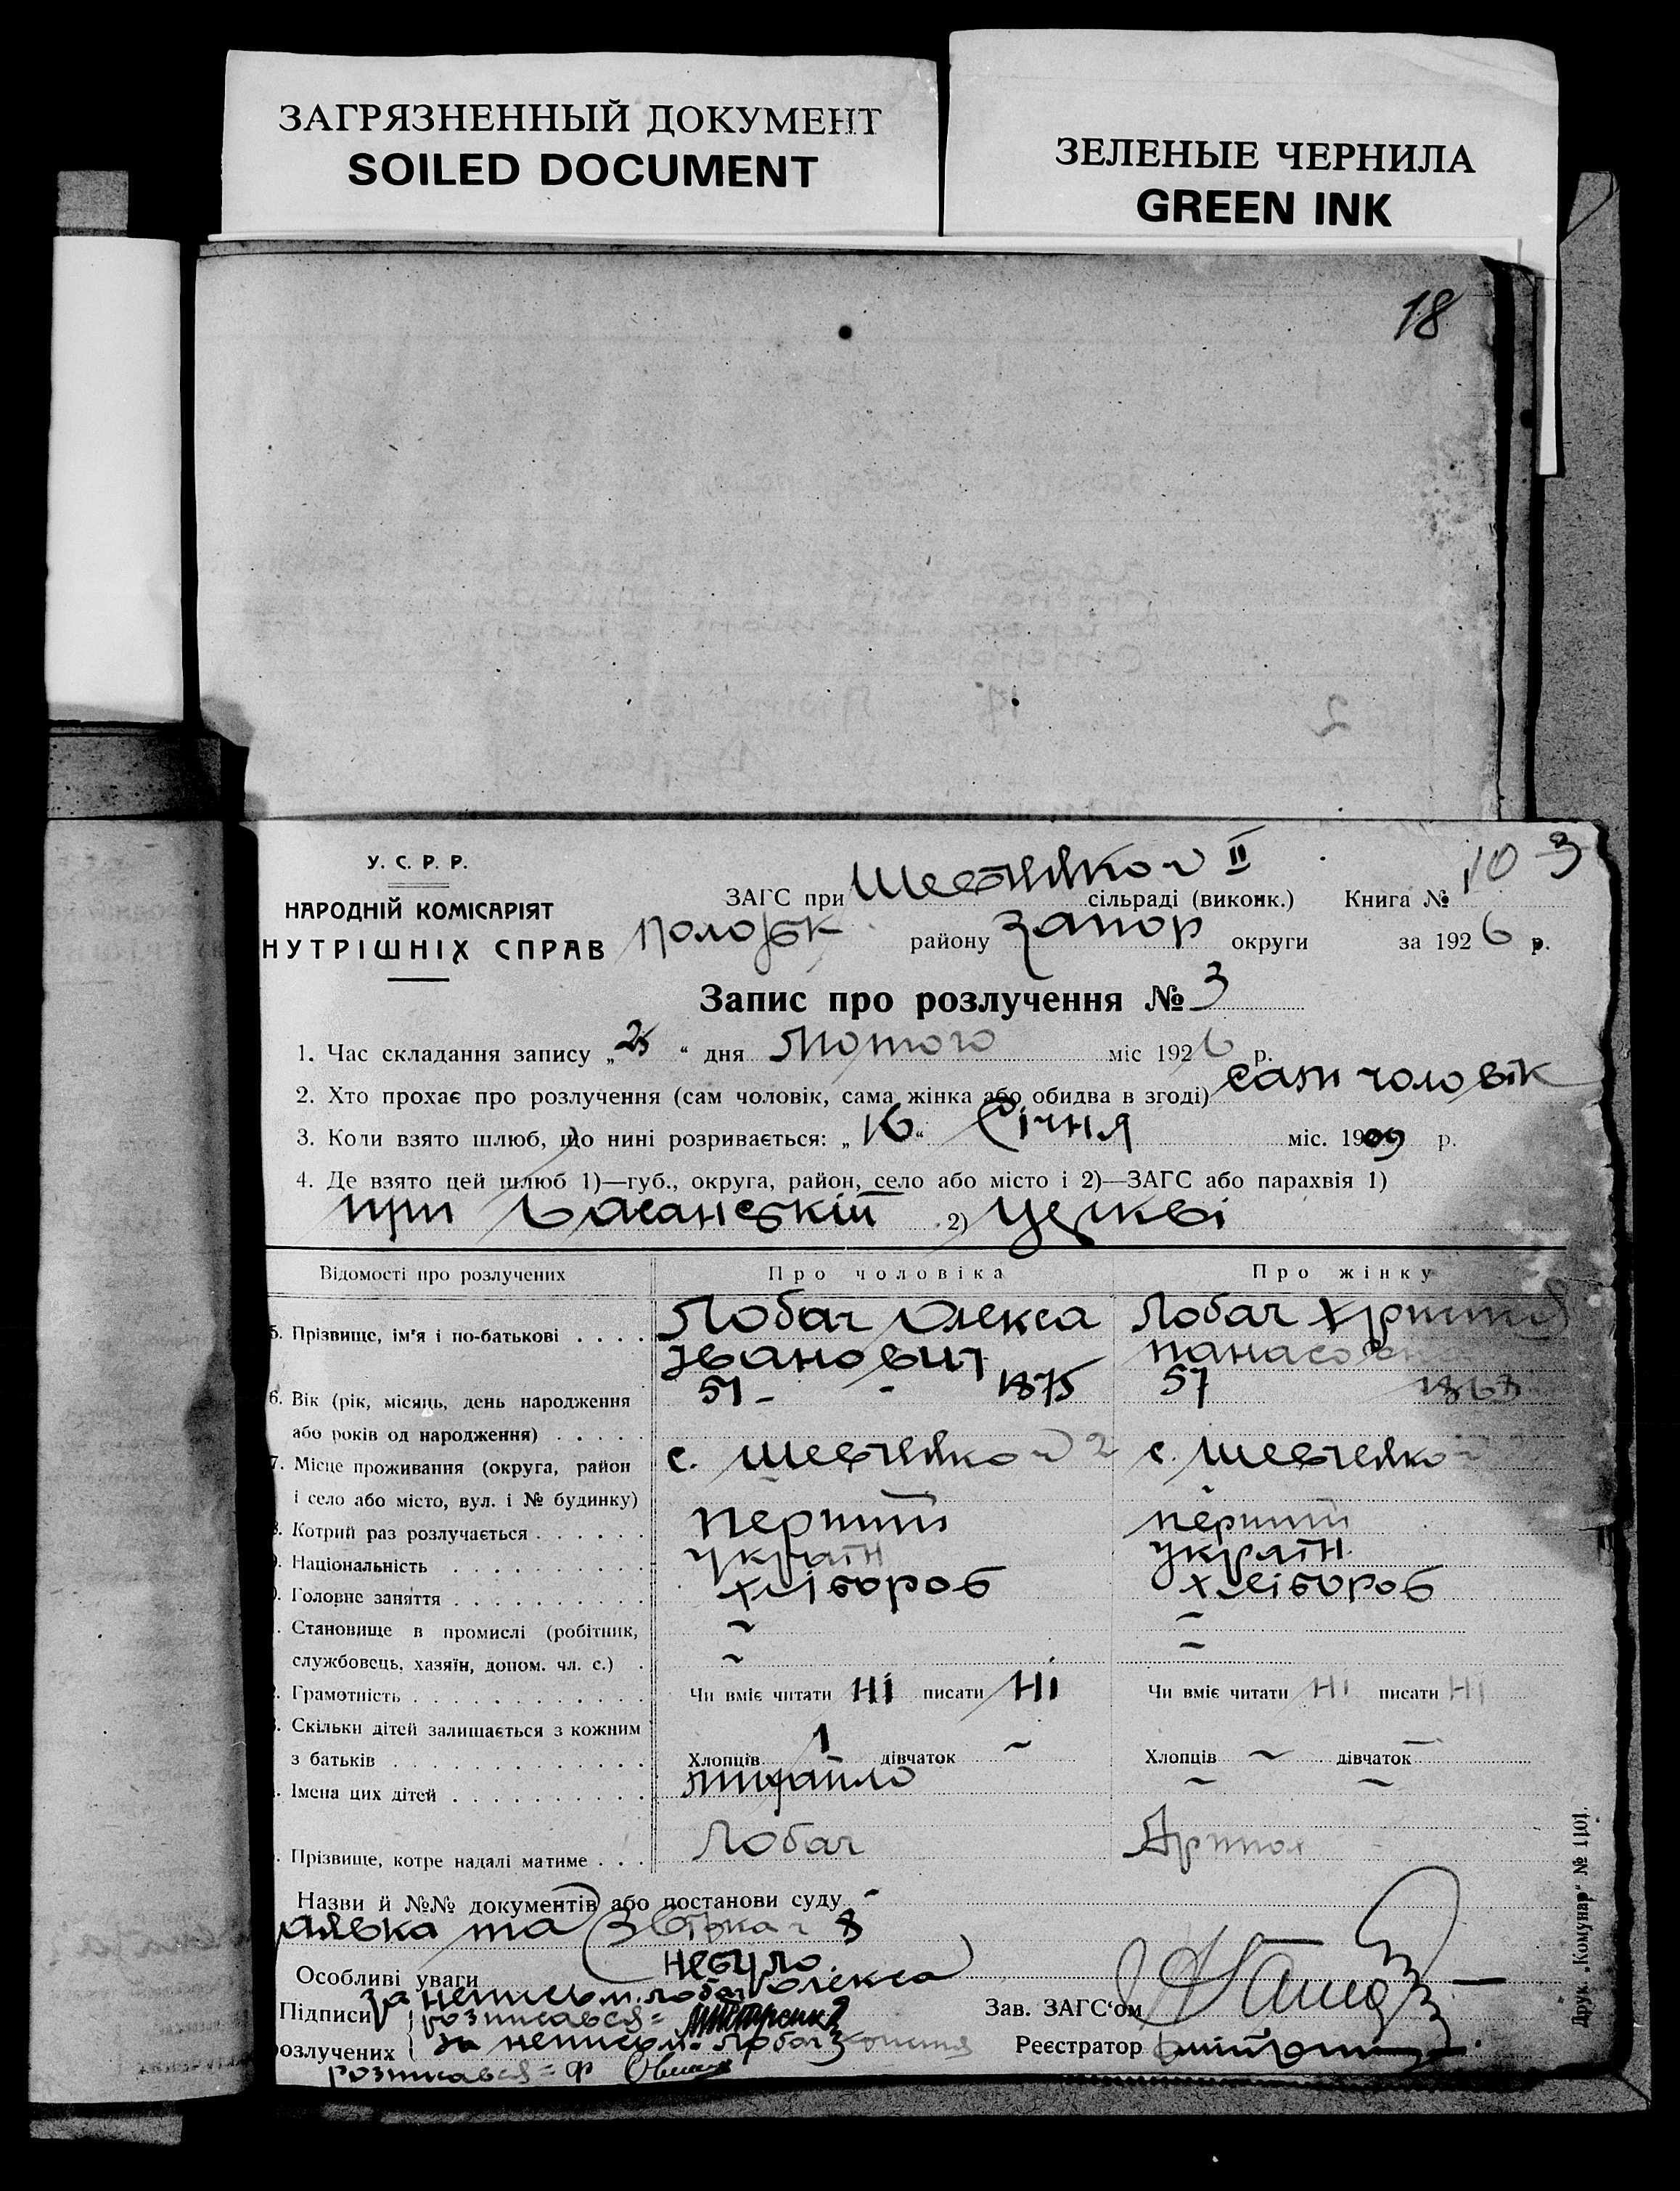 ЗАГРЯЗНЕННЫЙ ДОКУМЕНТ
SOILED DOCUMENT
ЗЕЛЕНЫЕ ЧЕРНИЛА
GREEN INK
18
У. С. Р. Р.
НАРОДНІЙ КОМІСАРІЯТ
НУТРІШНІХ СПРАВ
10 3
ЗАГС при II сільраді (виконк.) Книга №
району Запор округи за 1926 р.
Запис про розлучення № 3
1. Час складання запису „ “ дня Лютого міс 1926 р.
2. Хто прохає про розлучення (сам чоловік, сама жінка або обидва в згоді) сам чоловік
3. Коли взято шлюб, що нині розривається: „16“ Січня міс. 1909 р.
4. Де взято цей шлюб 1)—губ., округа, район, село або місто і 2)—ЗАГС або парахвія 1)
при Басанській 2) церкві
Відомості про розлучених Про чоловіка Про жінку
5. Прізвище, ім'я і по-батькові . . . . Лобач Олекса Лобач
Іванович
6. Вік (рік, місяць, день народження 51 - - 1875 57 1868
або років од народження) . . . . .
7. Місце проживання (округа, район с. 2 с.
і село або місто, вул. і № будинку)
Котрий раз розлучається . . . . . . Перший перший
Національність . . . . . . . . . . україн україн
Головне заняття . . . . . . . . . . хлібороб хлібороб
Становище в промислі (робітник, ~ ~
службовець, хазяїн, допом. чл. с.) . ~ ~
Грамотність . . . . . . . . . . . . Чи вміє читати Ні писати Ні Чи вміє читати Ні писати Ні
Скільки дітей залишається з кожним
з батьків . . . . . . . . . . . . . Хлопців 1 дівчаток ~ Хлопців ~ дівчаток —
Імена цих дітей . . . . . . . . . . Михайло ~ ~
Прізвище, котре надалі матиме . . . Лобач
Назви й №№ документів або постанови суду -
аявка та
Особливі уваги не було
за неписьм. Лобач Олекса
Підписи розписався= Зав. ЗАГС‘ом
озлучених за неписьм. Лобач Реєстратор
розписався=
Друк. „Комунар“ № 1101.